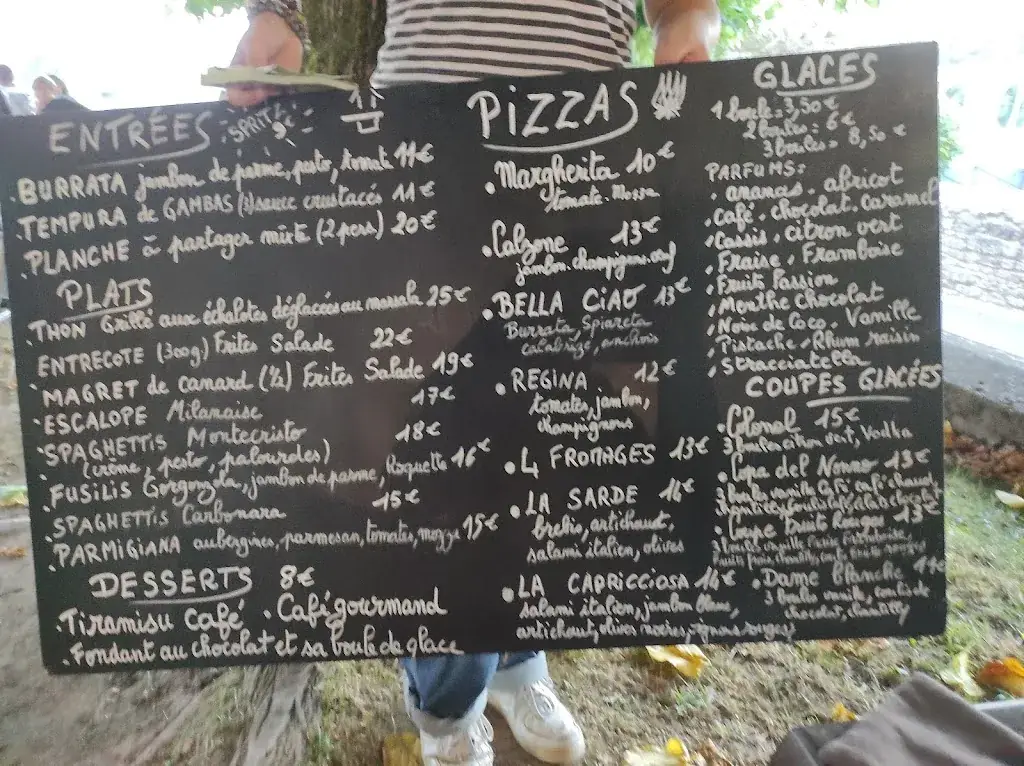 ENTRÉES
SPRITZ 9€
BURRATA jambon de parme, pesto, tomate 11€
TEMPURA de GAMBAS (3) sauce crustacés 11€
PLANCHE à partager mixte (2 pers) 20€
PLATS
THON Grillé aux échalotes déglacées au marsala 25€
ENTRECOTE (300g) Frites Salade 22€
MAGRET de canard (½) Frites Salade 19€
ESCALOPE Milanaise 17€
SPAGHETTIS Montecristo 18€
(crème, pesto, palourdes)
FUSILIS Gorgonzola, jambon de parme, Roquette 16€
SPAGHETTIS Carbonara 15€
PARMIGIANA aubergines, parmesan, tomates, mozza 15€
DESSERTS 8€
Tiramisu Café . Café gourmand
Fondant au chocolat et sa boule de glace
PIZZAS
Margherita 10€
tomate. Mozza
Calzone 13€
jambon. champignons. œuf
BELLA CIAO 13€
Burrata, Spianata
calabrese, anchois
REGINA 12€
tomates, jambon,
champignons
4 FROMAGES 13€
LA SARDE 14€
brebis, artichaut,
salami italien, olives
LA CAPRICCIOSA 14€
salami italien, jambon blanc,
artichaut, olives noires,
GLACES
1 boule = 3,50€
2 boules = 6€
3 boules = 8,50€
PARFUMS:
ananas. abricot
Café. chocolat. Caramel
Cassis. citron vert
Fraise. Framboise
Fruits Passion
Menthe Chocolat
Noix de Coco. Vanille
Pistache. Rhum raisin
Stracciatella
COUPES GLACÉES
Colonel 15€
3 boules citron vert, Vodka
Copa del Nonno 13€
3 boules vanille Café, café chaud,
chantilly, chocolat
Coupe Fruits Rouges 13€
3 boules vanille Fraise Framboise,
Dame blanche 11€
3 boules vanille, coulis de
chocolat, chantilly